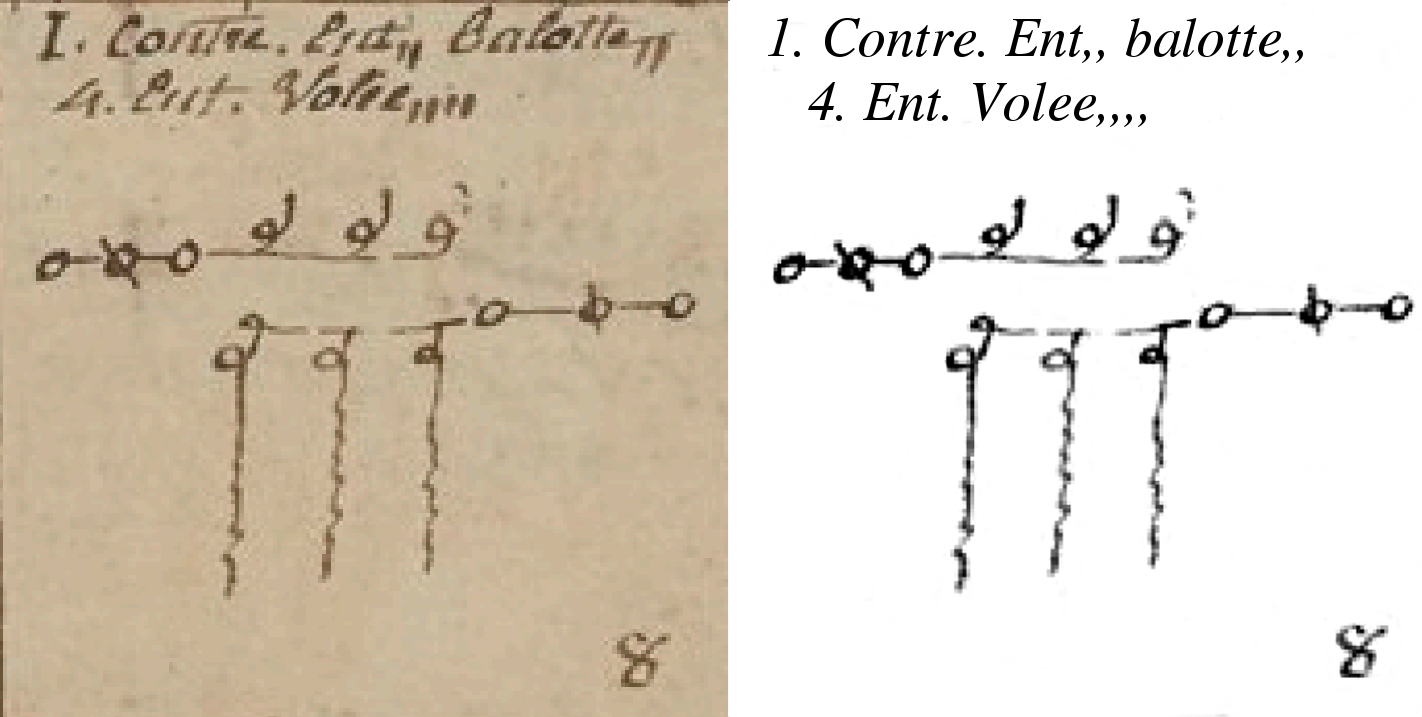 I. Contre. Ent,, Balotte,,
4. Ent. Volee,,,,
8
1. Contre. Ent,, balotte,,
4. Ent. Volee,,,,
8